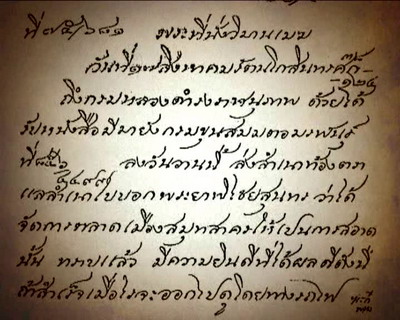 ที่ ๗๕/๖๘๑ พระที่นั่งวิมานเมฆ
วันที่ ๑๗ สิงหาคม รัตนโกสินทรศก ๑๒๔
ถึงกรมหลวงดำรงราชานุภาพ ด้วยได้
รับหนังสือมีมายังกรมขุนสมมตอมรพันธุ์
ที่ ลงวันวานนี้ ส่งสำเนาท้องตรา
แลสำเนาใบบอกพระยาพิไชยสุนทร ว่าได้
จัดการตลาดเมืองสมุทสาคร ให้เปนการสอาด
นั้น ทราบแล้ว มีความยินดีที่ได้ผลดีดังนี้
ถ้าสำเร็จเมื่อไรจะออกไปดูโดยทางรถไฟ